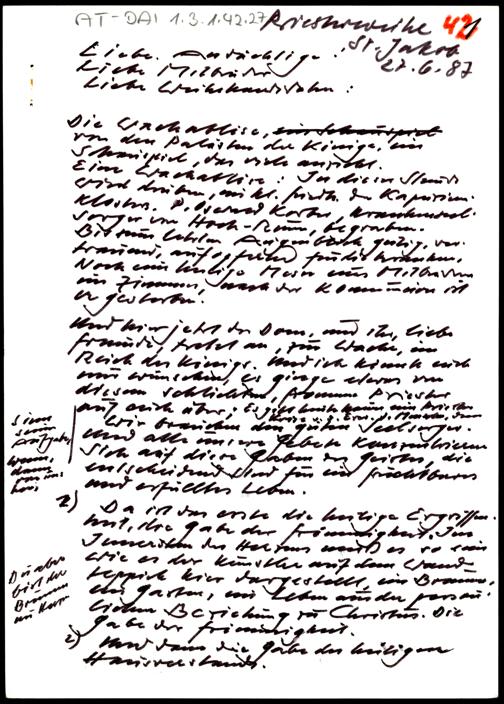 AT-DAI 1.3.1.42.27
Priesterweihe 42
St. Jakob
27.6.87
Liebe Angehörige!
Liebe Mitbrüder
Liebe Weihekandidaten:
Die Wachablöse,
vor den Palästen der Könige, ein
Schauspiel, das viele anzieht.
Eine Wachablöse: In dieser Stunde
wird drüben, im kl. Friedh. des Kapuziner-
klosters, P. Kortus, Krankenseel-
sorger von Hoch-Rum, begraben.
Bis zum letzten Augenblick gütig, ver-
trauend, für die Kranken.
Noch eine heilige Messe eines Mitbruders
im Zimmer, nach der Kommunion ist
er gestorben.
Und hier jetzt der Dom, und ihr, liebe
Freunde, tretet an, zur Wache, im
Reich des Königs. Und ich könnte euch
nur wünschen, es ginge etwas von
diesem schlichten, frommen Priester
auf euch über;
Wir brauchen den guten Seelsorger.
Und alle unsere Gebete konzentrieren
sich auf diese Gaben des Geistes, die
entscheidend sind für ein fruchtbares
und erfülltes Leben.
1) Da ist das erste die heilige Ergriffen-
heit, die Gabe der Frömmigkeit. Im
Innersten des Herzens muß es so sein
wie es der Künstler auf dem Wand-
teppich hier dargestellt, ein Brunnen,
ein Garten, ein Leben aus der persön-
lichen Beziehung zu Christus. Die
Gabe der Frömmigkeit.
Du aber
bist der
Brunnen
2) Und dann die Gabe des heiligen
Hausverstands.